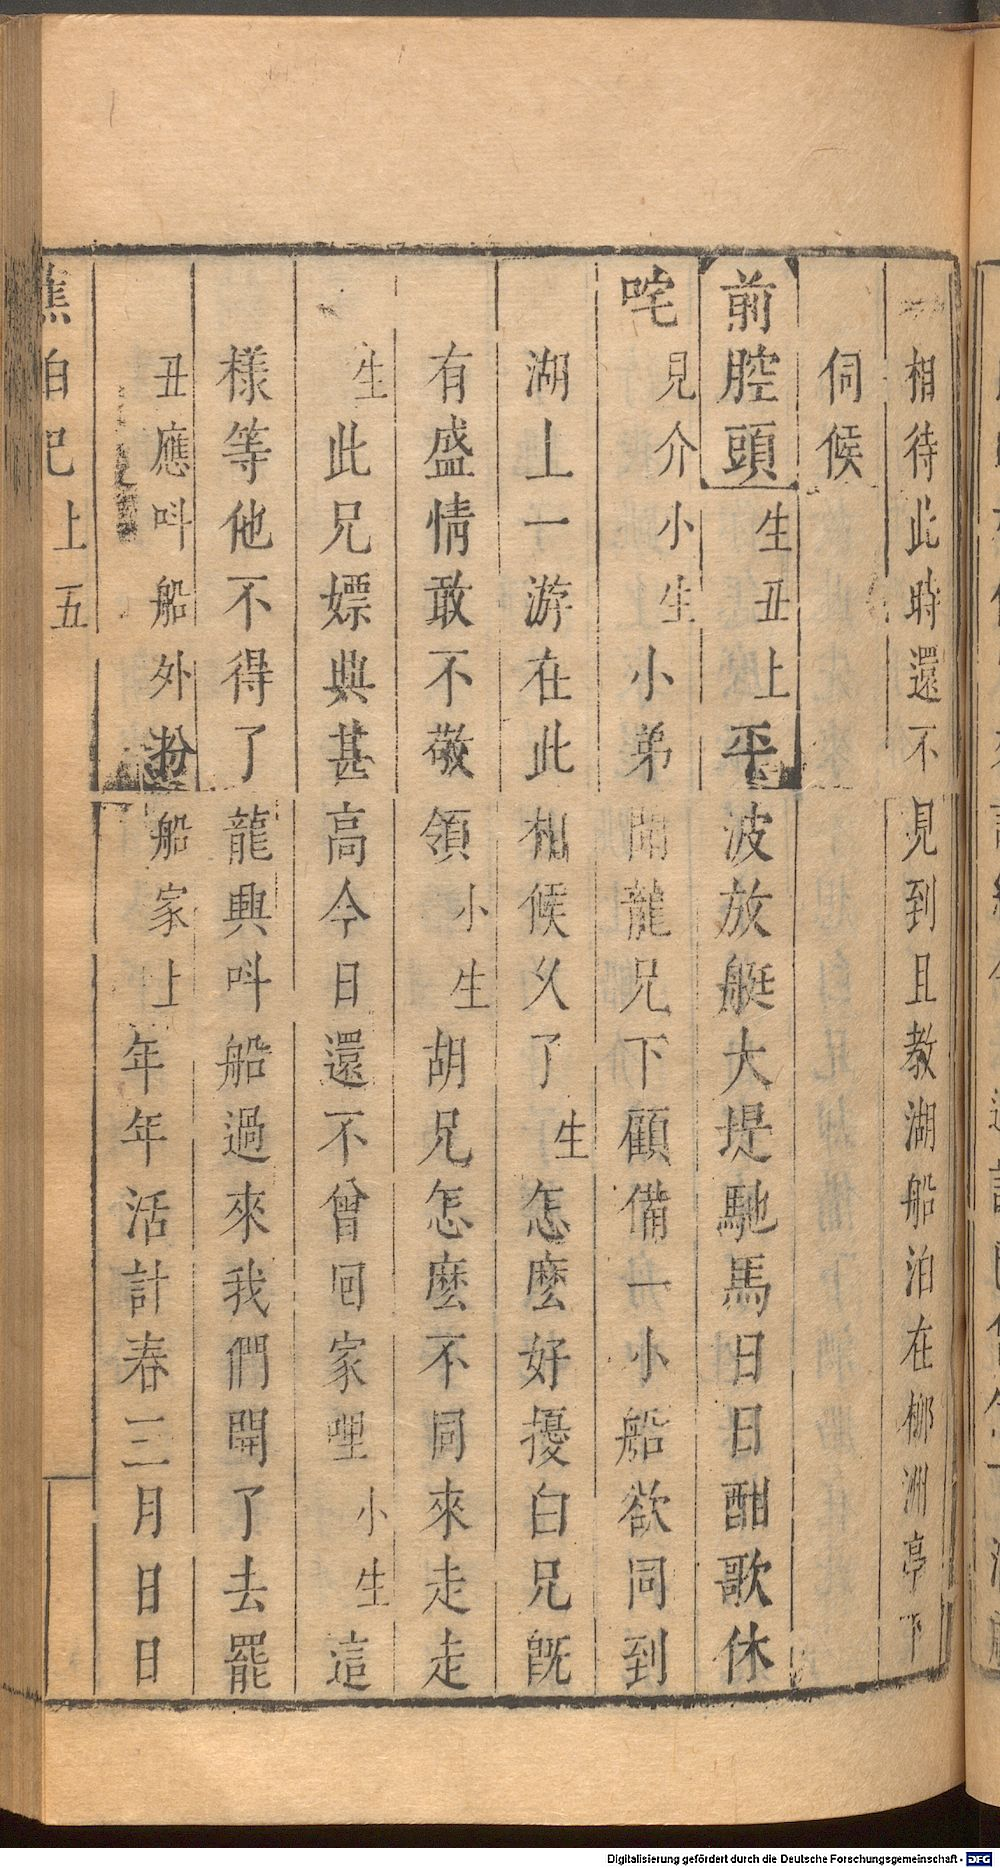 相待此時還不見到且教湖船泊在柳洲亭下
伺候
前腔頭 生丑上 平波放艇大堤馳馬日日酣歌休
咤 見介小生 小弟聞龍兄下顧備一小船欲同到
湖上一游在此相候久了 生 怎麼好擾白兄旣
有盛情敢不敬領 小生 胡兄怎麼不同來走走
生 此兄嫖興甚高今日還不曾回家哩 小生 這
樣等他不得了龍興呌船過來我們開了去罷
丑應呌船外扮船家上 年年活計春三月日日
蕉帕記上 五
Digitalisierung gefördert durch die Deutsche Forschungsgemeinschaft - DFG